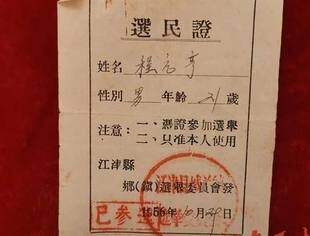 選民證
姓名 程
性別 男 年齡 21 歲
注意：一、憑證參加選舉
二、只准本人使用
江津縣
鄉(鎮)選舉委員會發
1956年10月29日
已參